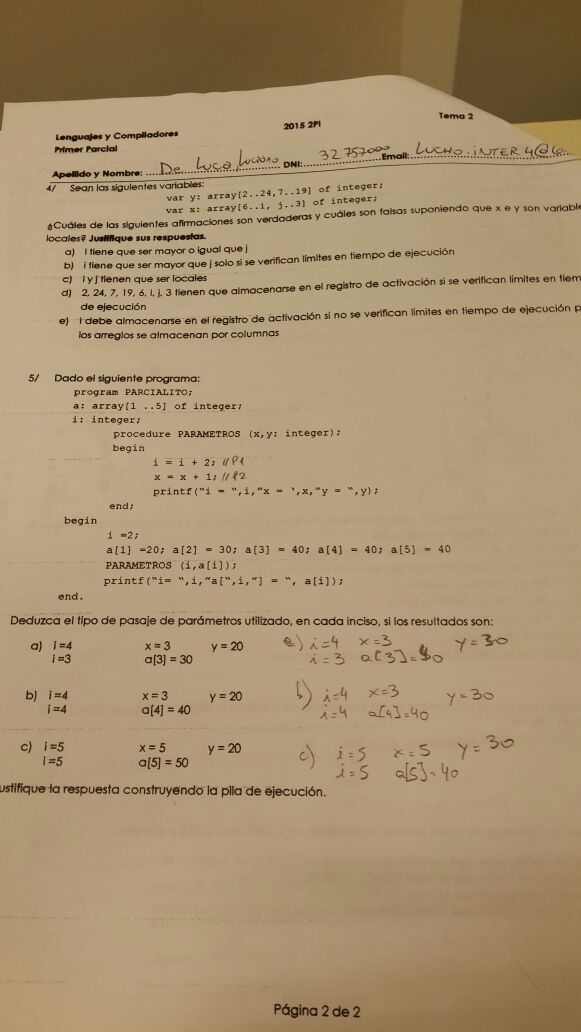 2015 2PI
Tema 2
Lenguajes y Compiladores
Primer Parcial
Apellido y Nombre: De Luca Luciano DNI: 32 757000 Email: LUCHO.INTER4@
4/ Sean las siguientes variables:
var y: array[2..24,7..19] of integer;
var x: array[6..i, j..3] of integer;
¿Cuáles de las siguientes afirmaciones son verdaderas y cuáles son falsas suponiendo que x e y son variable
locales? Justifique sus respuestas.
a) i tiene que ser mayor o igual que j
b) i tiene que ser mayor que j solo si se verifican límites en tiempo de ejecución
c) i y j tienen que ser locales
d) 2, 24, 7, 19, 6, i, j, 3 tienen que almacenarse en el registro de activación si se verifican límites en tiem
de ejecución
e) i debe almacenarse en el registro de activación si no se verifican límites en tiempo de ejecución p
los arreglos se almacenan por columnas
5/ Dado el siguiente programa:
program PARCIALITO;
a: array[1 ..5] of integer;
i: integer;
procedure PARAMETROS (x,y: integer);
begin
i = i + 2; //P1
x = x + 1; //P2
printf("i = ",i,"x = ',x,"y = ",y);
end;
begin
i =2;
a[1] =20; a[2] = 30; a[3] = 40; a[4] = 40; a[5] = 40
PARAMETROS (i,a[i]);
printf("i= ",i,"a[",i,"] = ", a[i]);
end.
Deduzca el tipo de pasaje de parámetros utilizado, en cada inciso, si los resultados son:
a) i=4 x=3 y=20 a) i=4 x=3 y=30
i=3 a[3]=30 i=3 a[3]=40
b) i=4 x=3 y=20 b) i=4 x=3 y=30
i=4 a[4]=40 i=4 a[4]=40
c) i=5 x=5 y=20 c) i=5 x=5 y=30
i=5 a[5]=50 i=5 a[5]=40
ustifique la respuesta construyendo la pila de ejecución.
Página 2 de 2